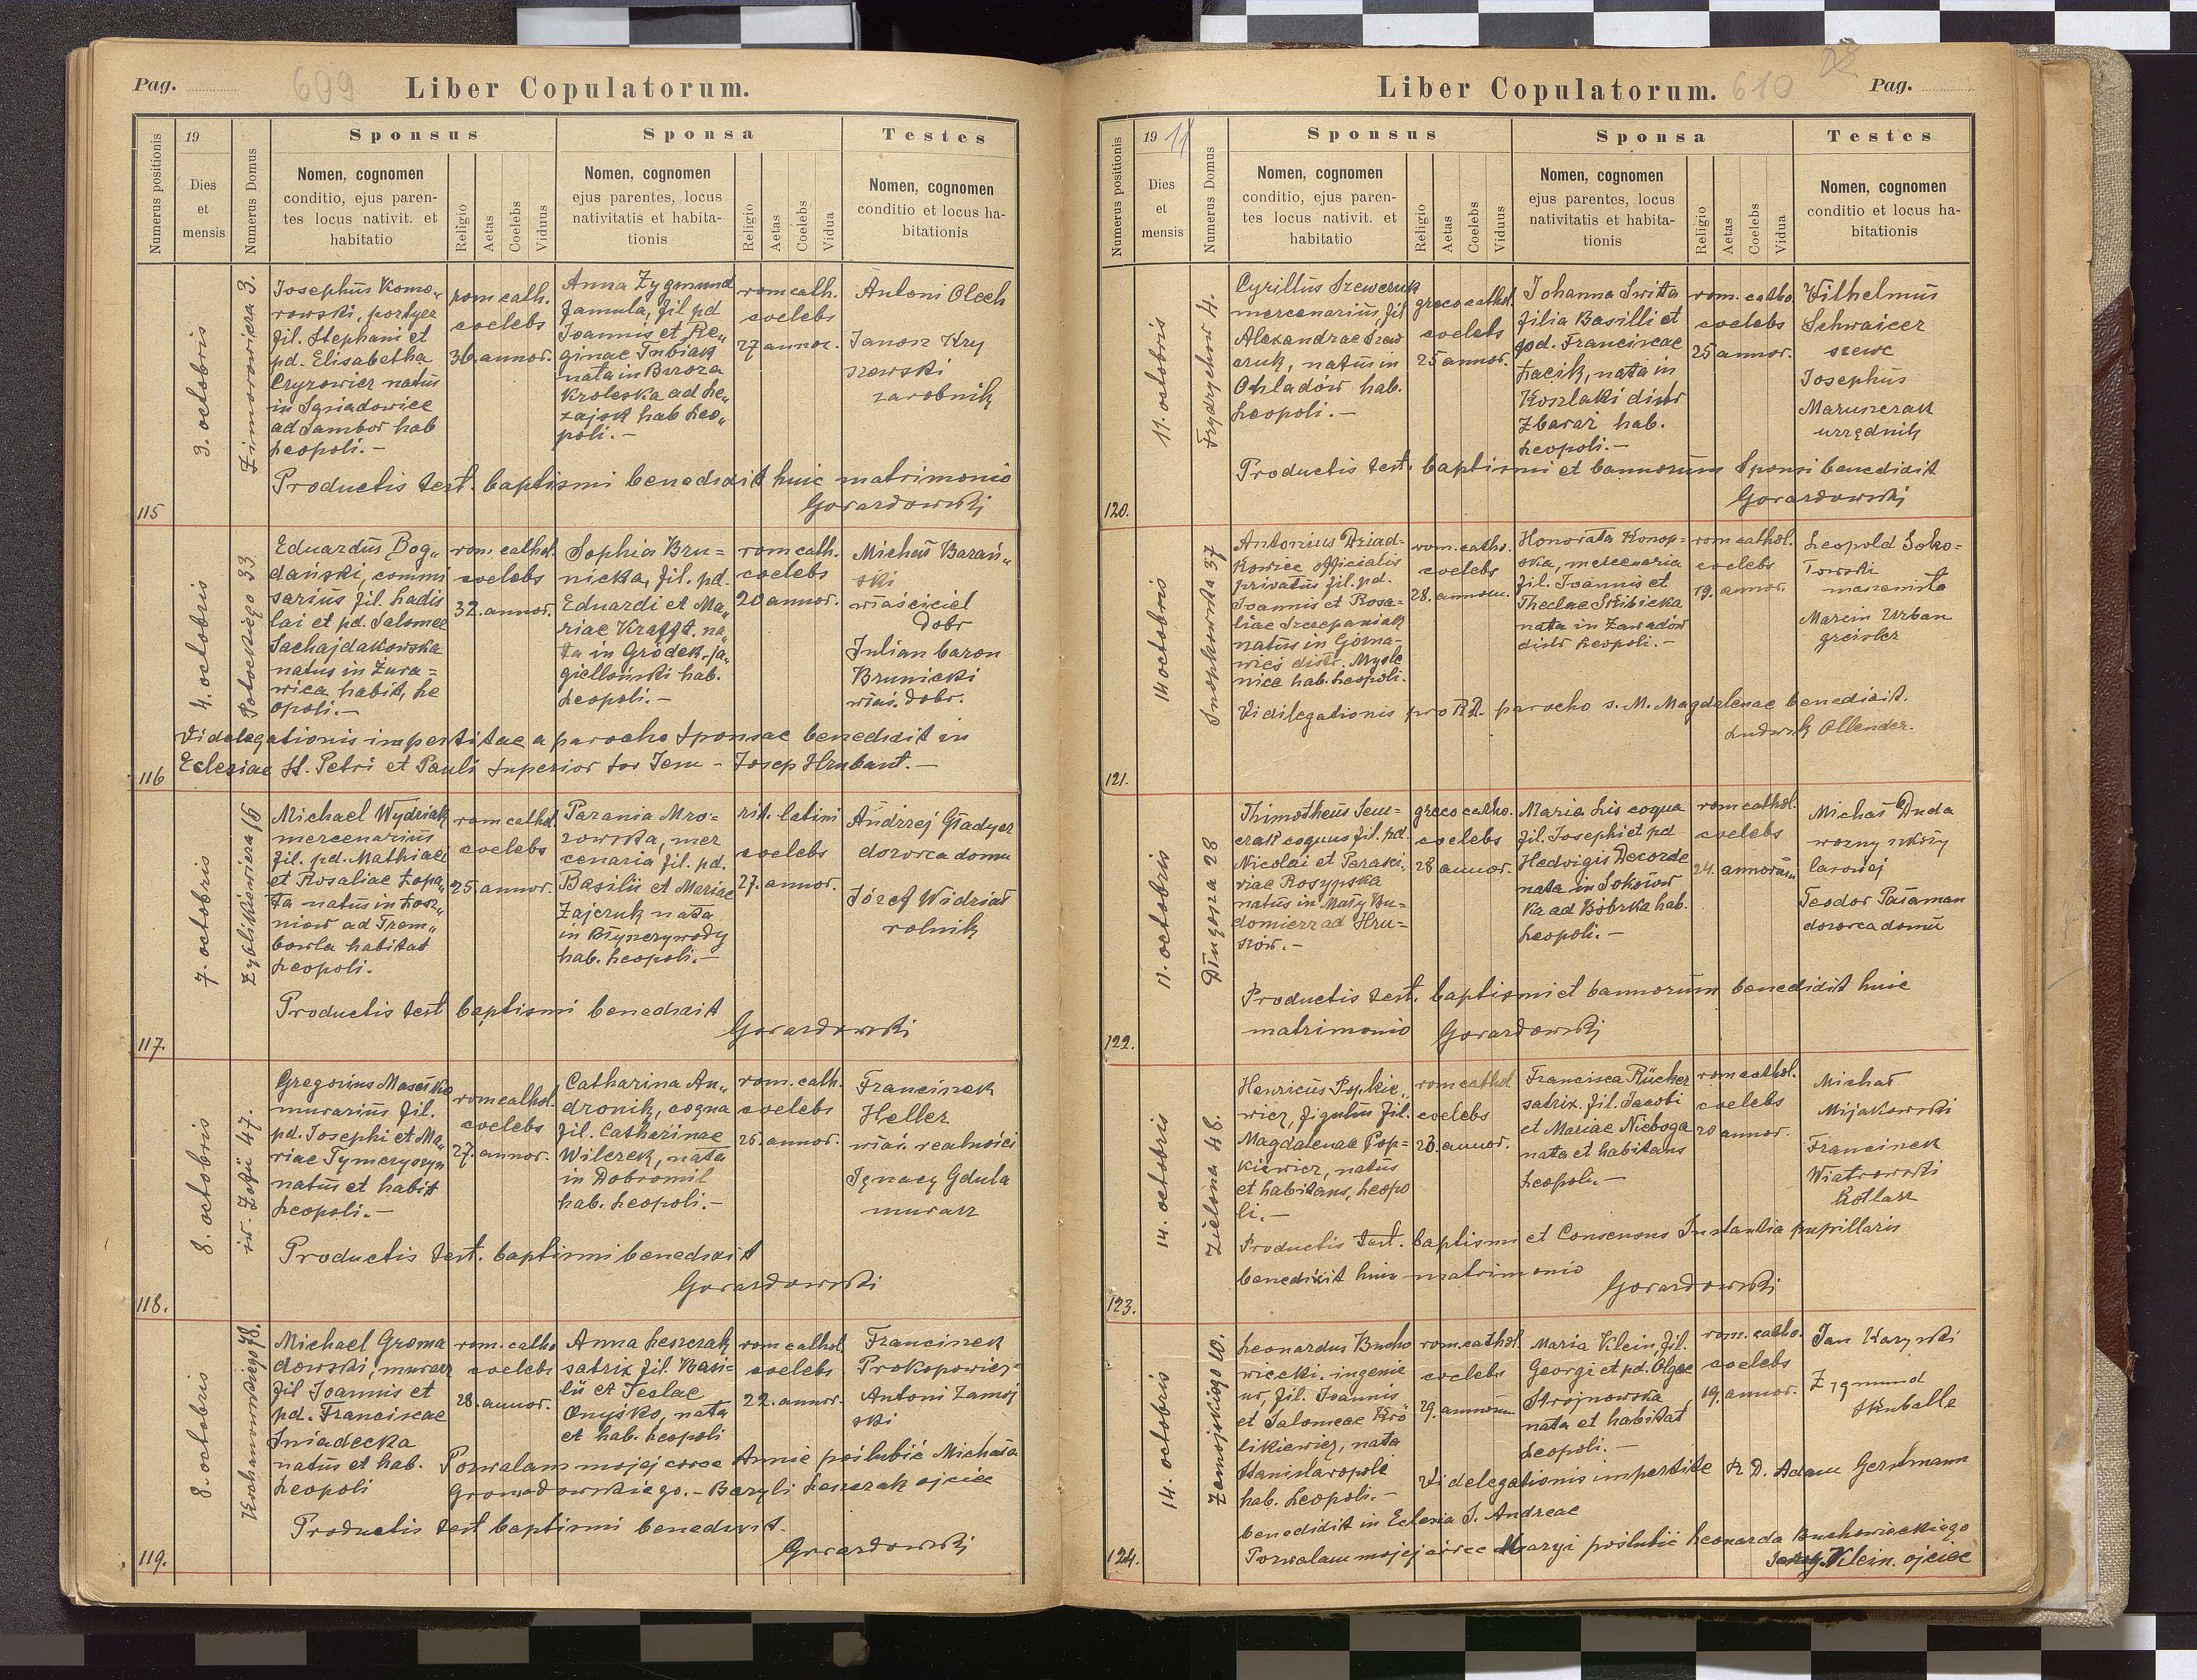 Pag. 609 Liber Copulatorum.
Numerus positionis
19
Dies
et
mensis
Numerus Domus
Sponsus
Nomen, cognomen
conditio, ejus paren-
tes locus nativit. et
habitatio
Religio
Aetas
Coelebs
Viduus
Sponsa
Nomen, cognomen
ejus parentes, locus
nativitatis et habita-
tionis
Religio
Aetas
Coelebs
Vidua
Testes
Nomen, cognomen
conditio et locus ha-
bitationis
115
3. octobris
Zimorowicza 3.
Josephus Komo„
rowski, portyer
fil. Stephani et
pd. Elisabetha
Cryzowicz natus
in
ad Sambor hab
Leopoli. –
rom cath.
coelebs
36. annor.
Anna Zygmund
famula, fil pd
Joannis et Re„
ginae Tubiak
nata in Brzoza
Kroleska ad Le„
zajsk hab Leo„
poli. –
rom cath.
coelebs
27 annor.
Antoni Olech
Janon Kry
szowski
zarobnik
Productis test. baptismi benedixit huic matrimonio
Gorazdowski
116
4. octobris
Potockiego 33
Eduardus Bog„
dański, commi
sarius fil. Ladis
lai et pd. Salomee
Sachajdakowska
natus in Żura=
wica habit, Le
opoli. –
rom. cathol.
coelebs
32. annor.
Sophia Bru=
nicka, fil. pd.
Eduardi et Ma„
riae Krafft. na„
ta in Gródek-ja„
gielloński hab.
Leopoli. –
rom cath.
coelebs
20 annor.
Michał Barań„
ski
właściciel
dobr
Julian baron
Brunicki
właś. dobr.
Vi delegationis impertitae a parocho Sponsae benedixit in
Eclesiae St. Petri et Pauli Superior Soc Jesu – Josep Hrubant. –
117.
7. octobris
Zyblikiewicza 16
Michael Wydziak
mercenarius
fil. pd. Mathiae
et Rosaliae Łopa„
ta natus in
niow ad Trem„
bowla habitat
Leopoli.
rom cathol.
coelebs
25 annor.
Parania Mro=
zowska, mer
cenaria fil. pd.
Basilii et Mariae
Zajczuk nata
in Błyszczywody
hab. Leopoli. –
rit. latini
coelebs
27. annor.
Andrzej Gładysz
dozorca domu
Józef Widziak
rolnik
Productis test baptismi benedixit
Gorazdowski
118.
8. octobris
św. Zofii 47.
Gregorius Maseiko
murarius fil.
pd. Josephi et Ma„
riae Tymczyszyn
natus et habit
Leopoli. –
rom cathol.
coelebs
27. annor.
Catharina An„
dronik, coqua
fil. Catharinae
Wilczek, nata
in Dobromil
hab. Leopoli. –
rom. cath.
coelebs
26. annor.
Francinzek
Heller
właś. realności
Ignacy Gdula
murarz
Productis test. baptismi benedixit
Gorazdowski
119.
8. octobris
Kochanowskiego 78.
Michael Groma
dowski, murarz
fil Joannis et
pd. Franciscae
Sniadecka
natus et hab.
Leopoli
rom. catho
coelebs
28. annor.
Anna Leszczak
satrix fil. Basi=
lii et Teclae
Onyśko, nata
et hab. Leopoli
rom cathol.
coelebs
22. annor.
Francinzek
Prokopowicz
Antoni Zamoj
ski
Pozwalam mojej corce Annie poślubić Michała
Gromadowskiego. – Bazyli Leszczak ojciec
Productis test baptismi benedixit.
Gorazdowski
Liber Copulatorum. 610 Pag.
Numerus positionis
1911
Dies
et
mensis
Numerus Domus
Sponsus
Nomen, cognomen
conditio, ejus paren-
tes locus nativit. et
habitatio
Religio
Aetas
Coelebs
Viduus
Sponsa
Nomen, cognomen
ejus parentes, locus
nativitatis et habita-
tionis
Religio
Aetas
Coelebs
Vidua
Testes
Nomen, cognomen
conditio et locus ha-
bitationis
120.
11. octobris
Frydrychow 4.
Cyrillus Szewczuk
mercenarius, fil
Alexandrae Szew
czuk, natus in
Ohladów hab.
Leopoli. –
greco cathol.
coelebs
25 annor.
Johanna Switta
filia Basilli et
pd. Franciscae
Łacik, nata in
Koszlaki distr
Zbaraż hab.
Leopoli. –
rom. catho.
coelebs
25 annor.
Wilhelmus
Schwaicer
szewc
Josephus
Maruszczak
urzędnik
Productis test. baptismi et bannorum Sponsi benedixit
Gorazdowski
121.
14 octobris
Snopkowska 37
Antonius Dziad-
kowiec officialis
privatus fil. pd.
Joannis et Rosa-
liae Szczepaniak
natus in Górna-
wieś distr. Myśle
nice hab. Leopoli.
rom. catho.
coelebs
28. annorum.
Honorata Konop-
ska, mercenaria
fil. Joannis et
Theclae Skibicka
nata in Zawadów
distr Leopoli. –
rom cathol.
coelebs
19. annor.
Leopold Soko=
łowski
maszenista
Marcin Urban
greisler
Vi dilegationis pro RD. parocho s. M. Magdalenae benedixit.
Ludwik Ollender.
122.
11. octobris
Długosza 28
Thimotheus Sem=
czak coquus fil. pd.
Nicolai et Paraski„
viae Rosypska
natus in Mały Bu=
domierz ad Hru=
szów. –
greco catho.
coelebs
28 annor.
Maria Lis coqua
fil. Josephi et pd
Hedvigis Decorde
nata in Sokołów
ka ad Bóbrka hab.
Leopoli. –
rom cathol.
coelebs
24. annorum
Michał Duda
wozny szkoły
lasowej
Teodor Pałaman
dozorca domu
Productis test. baptismi et bannorum benedidit huic
matrimonio Gorazdowski
123.
14. octobris
Zielona 48.
Henricus Popkie„
wicz, figulus fil.
Magdalenae Pop=
kiewicz, natus
et habitans, Leopo
li. –
rom cathol
coelebs
23. annor.
Francisca Rücher
satrix. fil. Jacobi
et Mariae Nieboga
nata et habitans
Leopoli. –
rom cathol.
coelebs
20 annor.
Michał
Mijakowski
Francinzek
Wiatrowski
kotlarz
Productis test. baptismi et Consensus Instantia pupillaris
benedixit huic matrimonio
Gorazdowski
124.
14. octobris
Zamojskiego 10.
Leonardus Bucho
wiecki. ingenie
ur, fil. Joannis
et Salomeae Kró
likiewicz, nata
Stanislaropole
hab. Leopoli. –
rom. cathol.
coelebs
29. annorum
Maria Klein, fil.
Georgi et pd. Olgae
Strojnowska
nata et habitat
Leopoli. –
rom. catho.
coelebs
19. annor.
Jan
Zygmund
Skuballe
Vi delegationis impertite R. D. Adam Gerstmann
benedidit in Eclesia S. Andreae
Pozwalam mojej córce Maryi poślubić Leonarda Buchowieckiego
Jerzy Klein. ojciec